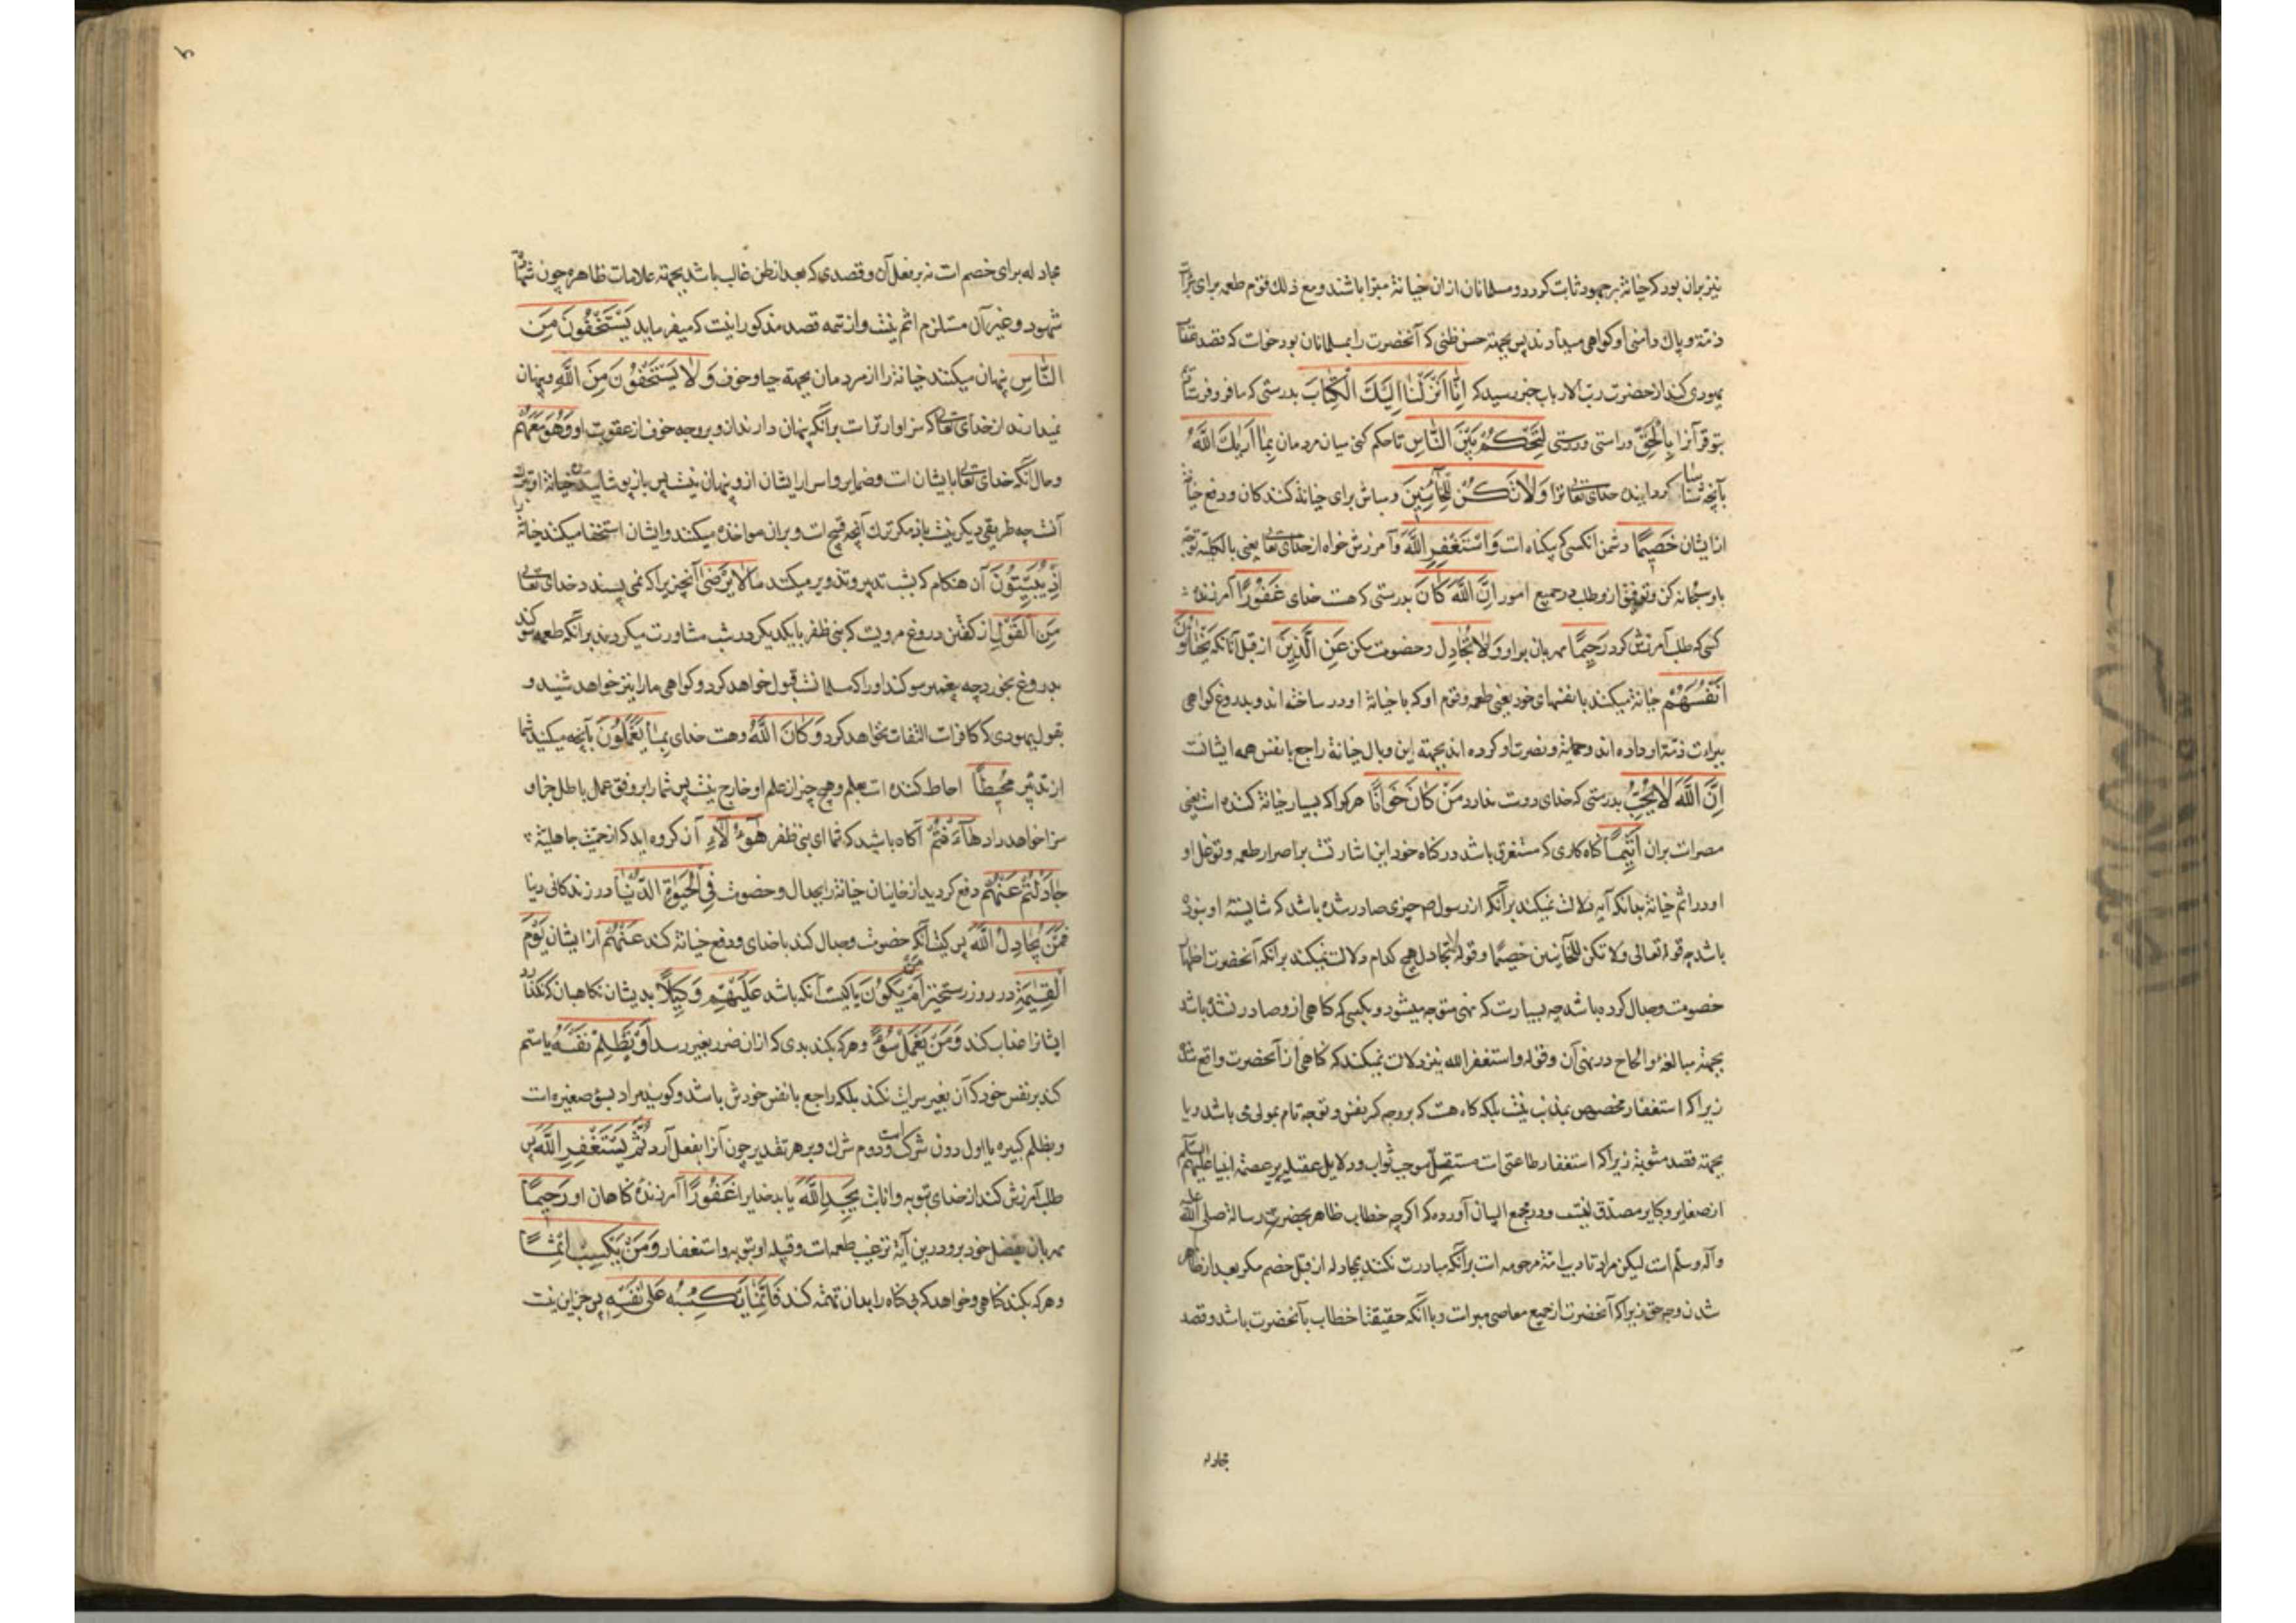 نیز بران بود که خیانة بر جهود ثابت کردد و مسلمانان ازان خیانة مبرّا باشند و مع ذلك قوم طعمه برای براءت
ذمّة و پاك دامنی او کواهی میدادند پس بجهة حسن ظنی که آنحضرت را بمسلمانان بود خواست که قصد عقاب
یهودی کند از حضرت ربّ الارباب خبر رسید که اِنّا اَنْزَلْنا اِلَیْكَ الْکِتابَ بدرستی که ما فرو فرستادیم
بتو قرآنرا بِالْحَقِّ براستی و درستی لِتَحْکُمَ بَیْنَ النّاسِ تا حکم کنی میان مردمان بِما اَریٰكَ اللّٰهُ
بآنچه شناسا کردانیده خدای تعالی ترا وَ لا تَکُنْ لِلْخآئِنینَ و مباش برای خیانة کنندکان و دفع خیانة
از ایشان خَصیمًا دشمن انکسی که بیکناه است وَ اسْتَغْفِرِ اللّٰهَ و آمرزش خواه از خدای تعالی یعنی بالکلیه توجّه
باو سبحانه کن و توفیق ازو طلب در جمیع امور اِنَّ اللّٰهَ کانَ بدرستی که هست خدای غَفُورًا آمرزنده
کسی که طلب آمرزش کرد رَحیمًا مهربان بر او وَ لا تُجادِل و خصومت مکن عَنِ الَّذینَ از قبل آنانکه یَخْتانُونَ
اَنْفُسَهُمْ خیانة میکنند با نفسهای خود یعنی طعمه و قوم او که با خیانة او در ساخته اند و بدروغ کواهی
ببراءت ذمّة او داده اند و حمایة و نصرت او کرده اند بجهة این وبال خیانة راجع با نفس همه ایشانست
اِنَّ اللّٰهَ لا یُحِبُّ بدرستی که خدای دوست ندارد مَنْ کانَ خَوّانًا هر کرا که بسیار خیانة کننده است یعنی
مصر است بران اَثیمًا کناه کاری که مستغرق باشد در کناه خود این اشارتست بر اصرار طعمه و توغل او
او در اثم خیانة بدانکه آیه دلالت نمیکند بر آنکه از رسول ص چیزی صادر شده باشد که شایسته او نبوده
باشد چه قوله تعالی و لا تکن للخآئنین خصیمًا و قوله لا تجادل هیچ کدام دلالت نمیکند برانکه آنحضرت اظهار
خصومت و جدال کرده باشد چه بسیار است که نهی متوجه میشود بکسی که کاهی ازو صادر نشده باشد
بجهة مبالغه و الحاح در نهی آن و قوله و استغفر الله نیز دلالت نمیکند که کناهی از آنحضرت واقع شده
زیرا که استغفار مخصوص بمذنب نیست بلکه کاه هست که بر وجه کسر نفس و توجه تام بمولی می باشد و یا
بجهة قصد مثوبة زیرا که استغفار طاعتی است مستقل موجب ثواب و دلایل عقلیه بر عصمة انبیا علیهم السلام
از صغایر و کبایر مصدّق اینست و در مجمع البیان آورده که اکرچه خطاب ظاهر بحضرت رسالة صلی الله علیه
وآله وسلم است لیکن مراد تادیب امّة مرحومه است برآنکه مبادرت نکنند بمجادله از قبل خصم مکر بعد از ظاهر
شدن وجه حق زیرا که آنحضرت از جمیع معاصی مبراست و با آنکه حقیقتا خطاب بآنحضرت باشد و قصد
مجادله
مجادله برای خصم است نه بر فعل آن و قصدی که بعد از ظن غالب باشد بجهة علامات ظاهره چون شهادت
شهود و غیر آن مستلزم اثم نیست و از تتمه قصه مذکور اینست که میفرماید یَسْتَخْفُونَ مِنَ
النّاسِ پنهان میکنند خیانة را از مردمان بجهة حیا و خوف وَ لا یَسْتَخْفُونَ مِنَ اللّٰهِ و پنهان
نمیدارند از خدای تعالی که سزاوارتر است برانکه پنهان دارند ازو بر وجه خوف از عقوبت او وَ هُوَ مَعَهُمْ
و حال آنکه خدای تعالی با ایشان است و ضمایر و اسرار ایشان ازو پنهان نیست پس باز پوشانیدن خیانة ازو
آنست چه طریقی دیکر نیست باو مکر ترك آنچه قبیح است و بران مواخذه میکند و ایشان استخفا میکنند خیانة
اِذْ یُبَیِّتُونَ آن هنکام که بشب تدبیر و تذویر میکنند ما لا یَرْضیٰ آنچیزیرا که نمی پسندد خدای تعالی
مِنَ الْقَوْلِ از کفتن دروغ مرویست که بنی ظفر با یکدیکر در شب مشاورت میکردند برانکه طعمه سوکند
بدروغ بخورد چه پیغمبر سوکند اورا که مسلمانست قبول خواهد کرد و کواهی مارا نیز خواهد شنید و
بقول یهودی که کافر است التفات نخواهد کرد وَ کانَ اللّٰهُ و هست خدای بِما یَعْمَلُونَ بآنچه میکنید شما
از تدبیر مُحیطًا احاطه کننده است بعلم و هیچ چیز از علم او خارج نیست پس شما را بر وفق عمل باطل جزا و
سزا خواهد داد هآ اَنْتُمْ آکاه باشید که شما ای بنی ظفر هٰؤُلآءِ آن کروه اید که از حمیّت جاهلیّة
جادَلْتُمْ عَنْهُمْ دفع کردید از خاینان خیانة را بجدال و خصومت فِی الْحَیٰوةِ الدُّنْیا در زندکانی دنیا
فَمَنْ یُجادِلُ اللّٰهَ پس کیست آنکه خصومت و جدال کند با خدای و دفع خیانة کند عَنْهُمْ از ایشان یَوْمَ
الْقِیٰمَةِ در روز رستخیز اَمْ مَنْ یَکُونُ یا کیست آنکه باشد عَلَیْهِمْ وَکیلًا بدیشان نکاهبان که نکذارد
ایشانرا عذاب کند وَ مَنْ یَعْمَلْ سُوءً و هر که بکند بدی که ازان ضرر بغیر رسد اَوْ یَظْلِمْ نَفْسَهُ یا ستم
کند بر نفس خود که آن بغیر سرایت نکند بلکه راجع با نفس خودش باشد و کویند مراد بسوء صغیره است
و بظلم کبیره یا اول دون شرك است و دوم شرك و بر هر تقدیر چون آنرا بفعل آرد ثُمَّ یَسْتَغْفِرِ اللّٰهَ پس
طلب آمرزش کند از خدای بتوبه و انابت یَجِدِ اللّٰهَ یابد خدایرا غَفُورًا آمرزنده کناهان او رَحیمًا
مهربان بفضل خود برو درین آیة ترغیب طعمه است و قبیله او بتوبه و استغفار وَ مَنْ یَکْسِبْ اِثْمًا
و هر که بکند کناهی و خواهد که بی کناه را بدان تهمة کند فَاِنَّما یَکْسِبُهُ عَلیٰ نَفْسِهِ پس جز این نیست